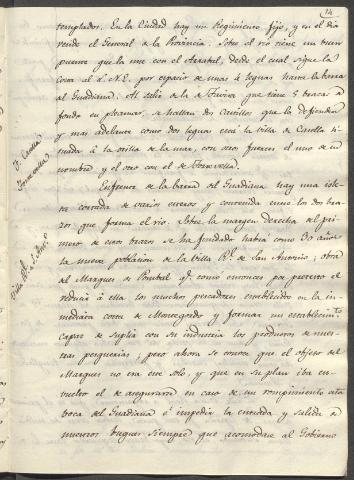 14
templados. En la Ciudad hay un Regimiento fijo, y en el dia
reside el General de la Provincia. Sobre el rio tiene un buen
puente que la une con el Arrabal, desde el cual sigue la
costa al L.N.E. por espacio de unas 4 leguas hasta la barra
al Guadiana. Al salir de la de Tavira que tiene 5 brazas de
fondo en pleamar, se hallan dos Castillos que la defienden
y mas adelante como dos leguas está la villa de Castella si-
tuada á la orilla de la mar, con otros fuertes el uno de su
nombre y el otro con el de Torrevella.
Enfrente de la barra del Guadiana hay una isle-
ta cortada de varios esteros y contenida entre los dos bra-
zos que forma el rio. Sobre la margen derecha del pri-
mero de estos brazos se ha fundado habrá como 30 años
la nueva poblacion de la villa Rl. de San Antonio; obra
del Marques de Pombal qe. tomó entonces por pretexto el
reducir á ella los muchos pescadores establecidos en la in-
mediata costa de Montegordo y formar un establecimto.
capaz de suplir con su industria los productos de nues-
tras pesquerias; pero ahora se conoce que el objeto del
Marques no era ese solo, y que en su plan iba en-
vuelto el de asegurarse en caso de un rompimiento esta
boca del Guadiana é impedir la entrada y salida de
nuestros buques siempre que acomodase al Gobierno
Torrevella
Villa Rl. de S. Anto.